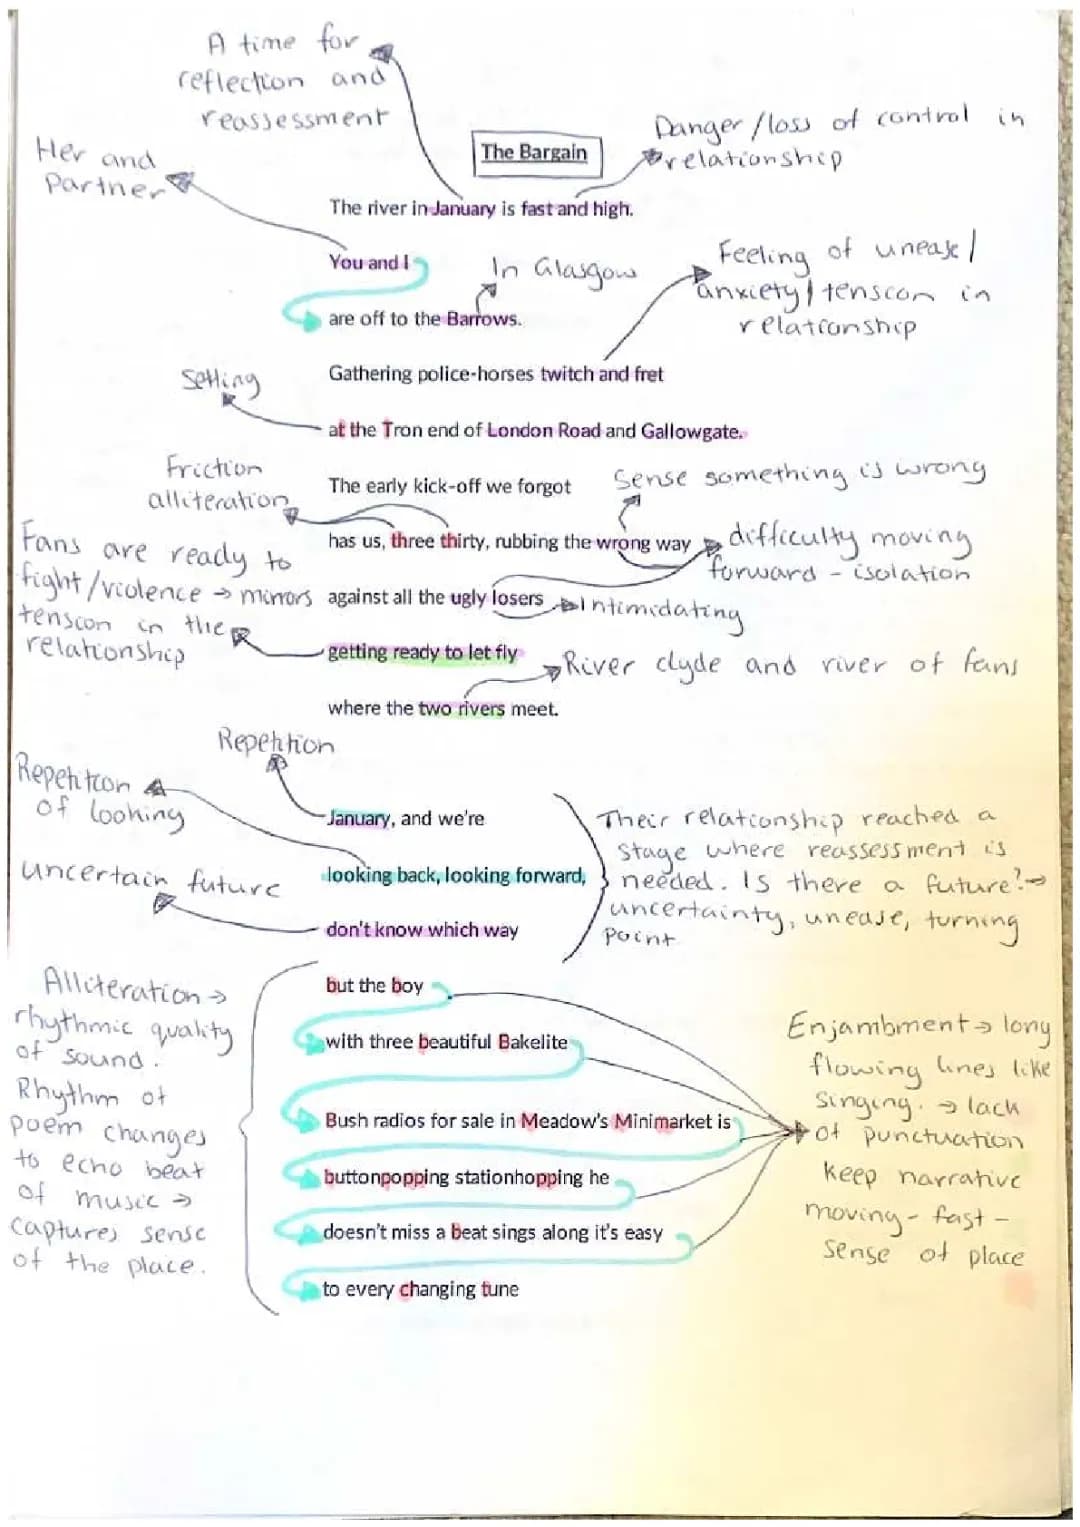 A time for
reflection and
reassessment
The Bargain
Danger/loss of control in
relationship
Her and
Partner
The river in January is fast and high.
You and I
In Glasgow
Feeling of unease/
anxiety/tension in
relationship
are off to the Barrows.
Gathering police-horses twitch and fret
Setting
at the Tron end of London Road and Gallowgate.
Friction
alliteration
The early kick-off we forgot
Sense something is wrong
has us, three thirty, rubbing the wrong way
difficulty moving
forward - isolation
Fans are ready to
fight/violence → mirrors
tension in the
relationship
against all the ugly losers
Intimidating
getting ready to let fly
River clyde and river of fans
where the two rivers meet.
Repetition
Repetition
of looking
January, and we're
looking back, looking forward,
uncertain future
don't know which way
Their relationship reached a
stage where reassessment is
needed. Is there a future? →
uncertainty, unease, turning
point
Alliteration →
rhythmic quality
of sound.
Rhythm of
poem changes
to echo beat
of music →
captures sense
of the place.
but the boy
with three beautiful Bakelite
Bush radios for sale in Meadow's Minimarket is
buttonpopping stationhopping he
doesn't miss a beat sings along it's easy
to every changing tune
Enjambment → long
flowing lines like
singing. → lack
of punctuation
keep narrative
moving - fast -
sense of place